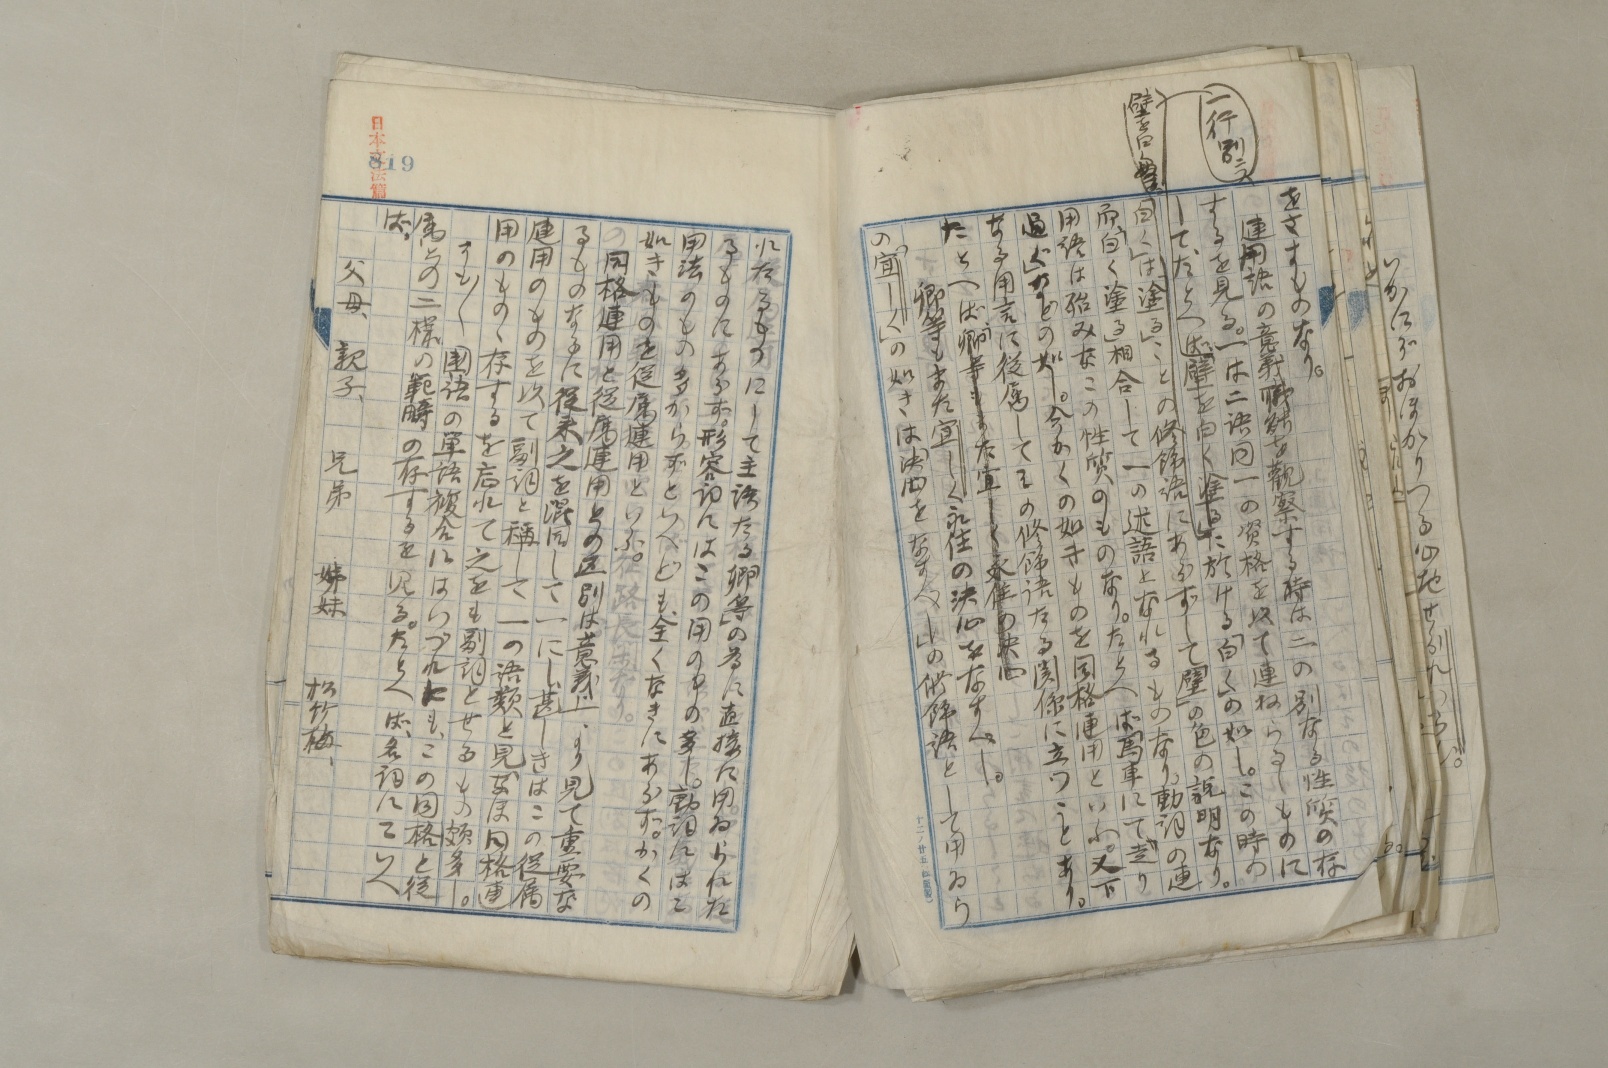 一行別ニス
壁ヲ白ク
をさすものなり。
連用語の意義職能を觀察する時は二の別なる性質の存
するを見る。一は二語同一の資格を以て連ねらるゝものに
して、たとへば「壁を白く塗る」に於ける「白く」の如し。この時の
「白く」は「塗る」ことの修飾語にあらずして「壁」の色の説明なり。
而「白く塗る」相合して一の述語となれるものなり。動詞の連
用語は殆みなこの性質のものなり。たとへば「馬車にて走り
過ぐ」などの如し。今かくの如きものを同格連用といふ。又下
なる用言に從属してその修飾語たる関係に立つことあり。
たとへば「卿等もまた宜しく永住の決心
卿等もまた宜しく永住の決心をなすべし。
の「宜しく」の如きは「決心をなすべし」の修飾語として用ゐら
十二ノ廿五
日本文法篇
819
れたるものにして主語たる「卿等」の為に直接に用ゐられた
るものにあらず。形容詞にはこの用のもの多し。動詞にはこ
用法のもの多からずといへども、全くなきにあらず。かくの
如きものを從属連用といふ。
同格連用と從属連用との区別は意義上より見て重要な
るものなるに從来之を混同して一にし、甚しきはこの從属
連用のものを以て副詞と称して一の語類と見なほ同格連
用のものゝ存するを忘れて之をも副詞とせるもの頗多し。
そも〳〵国語の単語複合にはいづれにも、この同格と從
属との二樣の範疇の存するを見る。たとへば、名詞にていへ
ば、
父母、親子、兄弟 姉妹 松竹梅、
いかにぞおほかりつる心地せられ